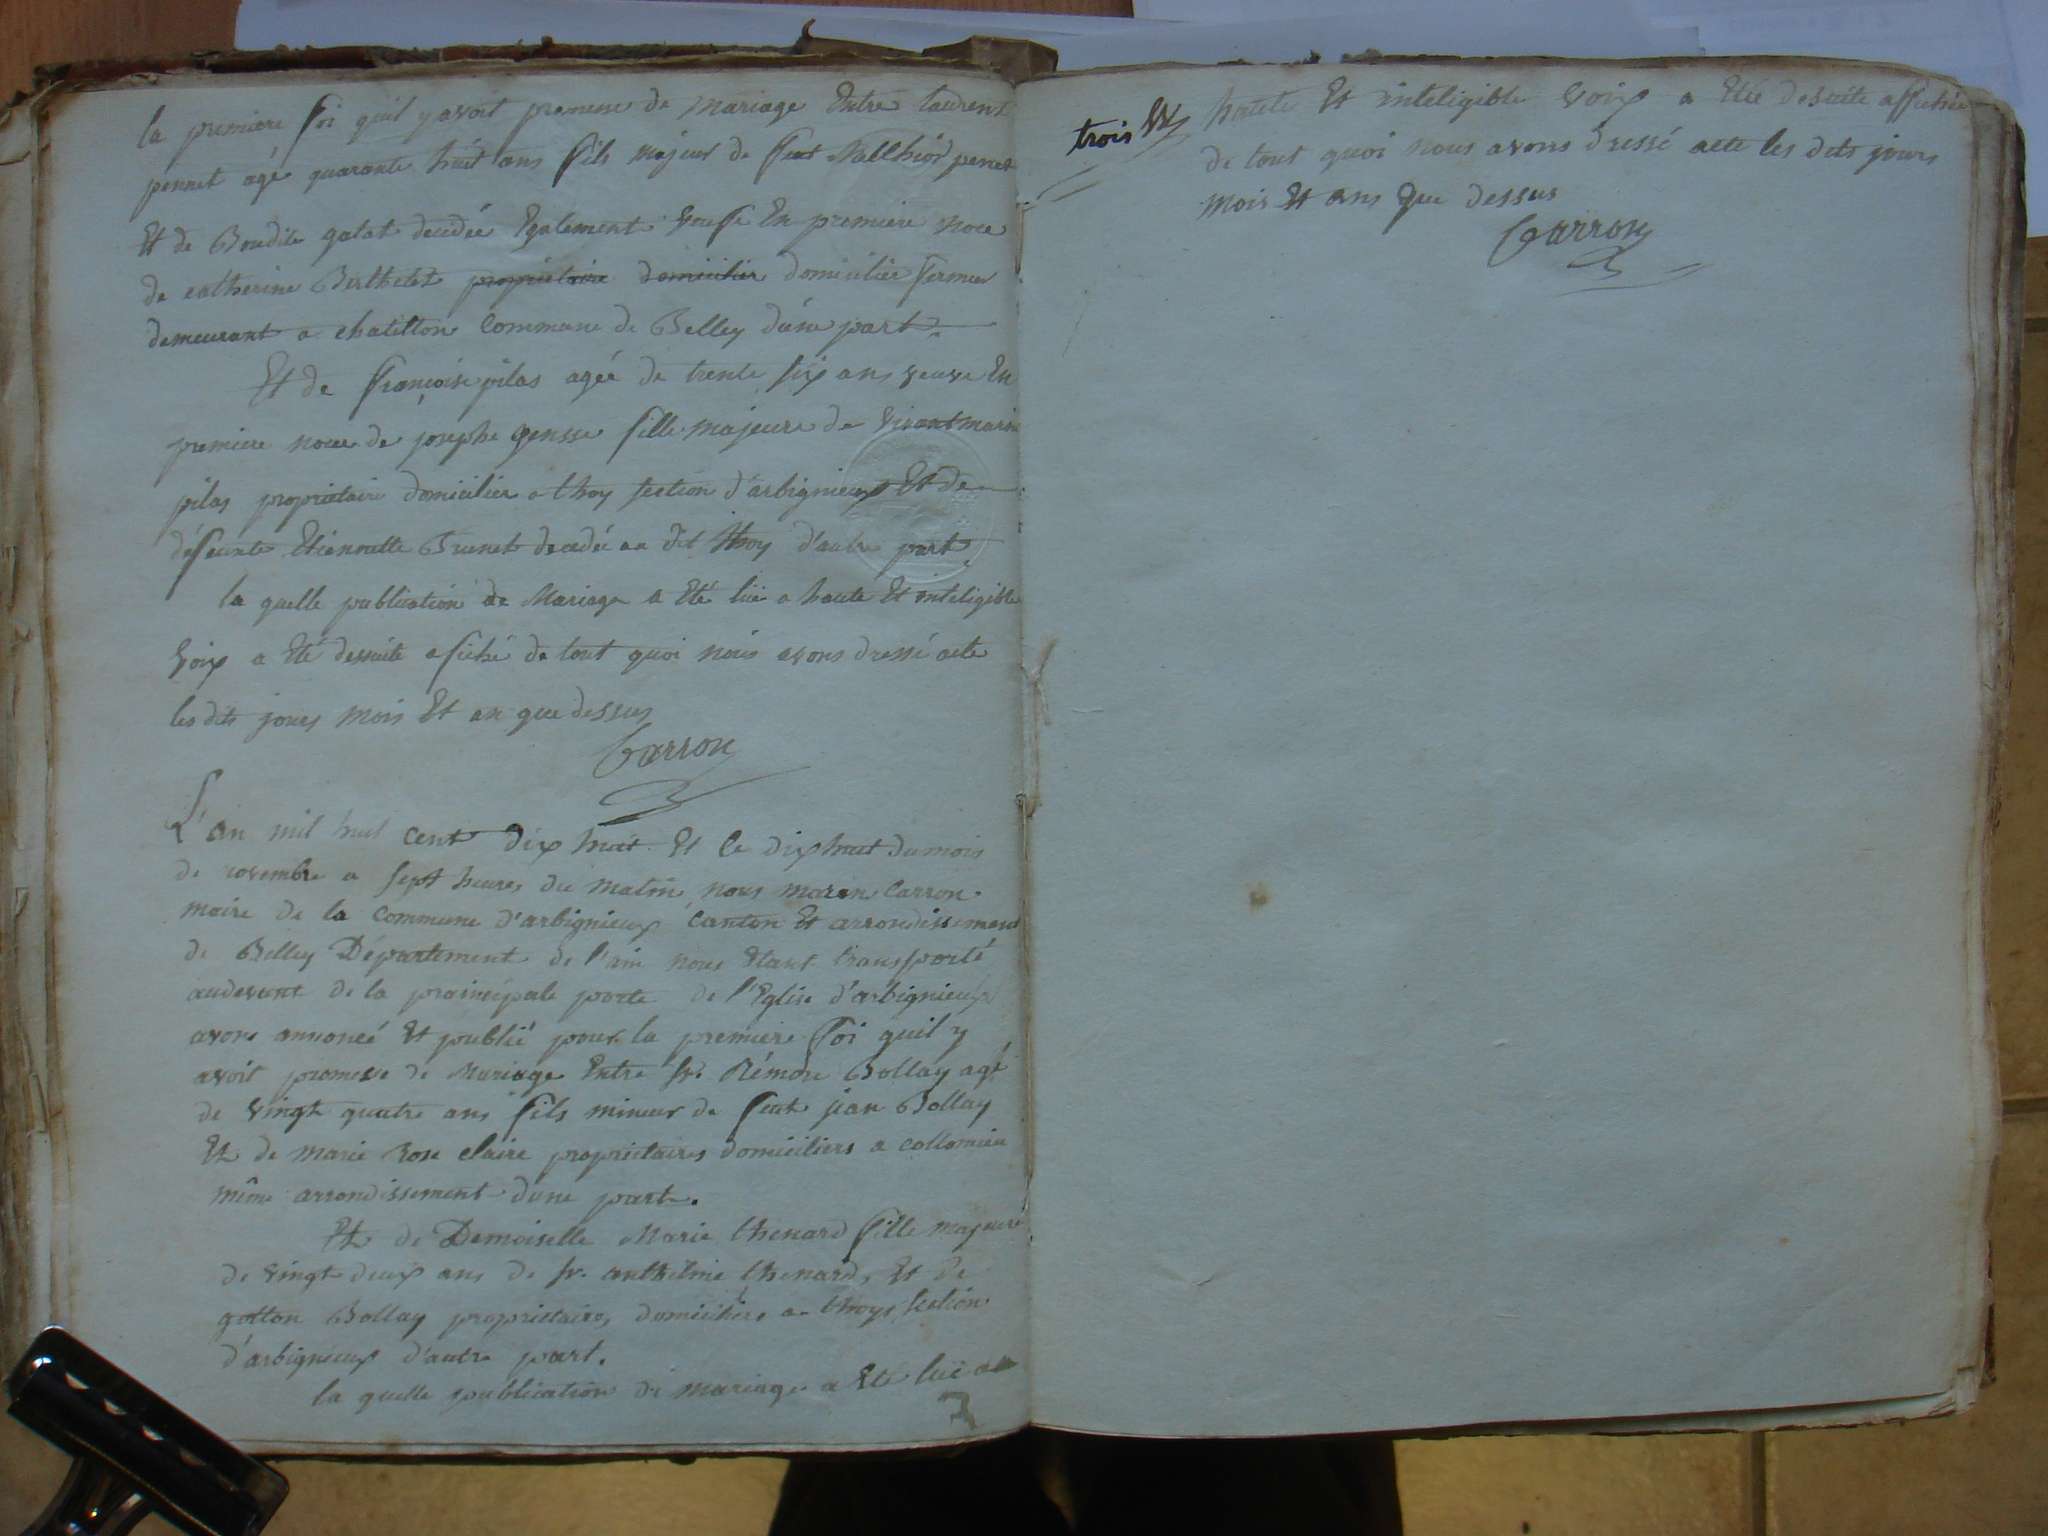 la premiere foi quil y avoit promesse de mariage Entre laurent
pernet agé quarante huit ans fils majeur de feut Melchior pernet
Et de Boudile galat decedée Egalement veufe En premiere noce
de catherine Berthelet propriétaire domicilier domicilier fermier
demeurant a chatillon Commune de Belley dune part
Et de françoise pilas agée de trente six ans veuve En
premiere noce de josephe gensse fille majeure de vivant marin
pilas propriétaire domicilier a thoy section d'arbignieux Et de
défeunte Etiennette Brunet decedée au dit thoy d'autre part
la quelle publication de Mariage a Eté lüe a haute Et inteligible
voix a Eté dessuite afiché de tout quoi nous avons dressé acte
les dits jours mois Et an que dessus
Carron
L'an mil huit cent dix huit Et le dix huit du mois
de novembre a sept heures du matin, nous maren Carron
maire de la Commune d'arbignieux Canton Et arrondissement
de Belley Département de l'ain nous Etant transporté
audevant de la prainsipale porte de l'Eglise d'arbignieux
avons annoncé Et publié pour la premiere foi quil y
avoit promesse de Mariage Entre sr. Rémon Bollay agé
de vingt quatre ans fils mineur de feut jean Bollay
Et de marie Rose claire propriétaires domiciliers a collomieu
même arrondissement dune part.
Et de Demoiselle Marie thenard fille majeure
de vingt deux ans de sr. anthelme thenard, Et de
gotton Bollay propriétaires domiciliers a thoys section
d'arbignieux d'autre part.
la quelle publication de mariage a Eté lüe a
3
trois
haute Et inteligible voix a Eté desuite affichée
de tout quoi nous avons dressé acte les dits jours
mois Et ans que dessus
Carron